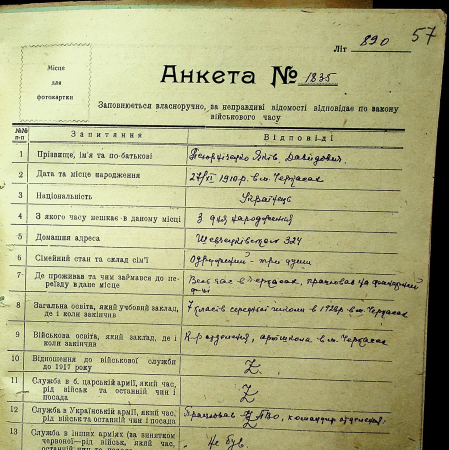 57
Літ 890
Місце
для
фотокартки
Анкета № 1835
Заповнюється власноручно, за неправдиві відомості відповідає по закону
військового часу
№№ п-п Запитання Відповіді
1 Прізвище, ім'я та по-батькові Яків Давідович.
2 Дата та місце народження 27/XI 1910 р. в м. Черкасах
3 Національність Українець
4 З якого часу мешкає в даному місці З дня народження
5 Домашня адреса 324
6 Сімейний стан та склад сім'ї Одружений – три душі
7 Де проживав та чим займався до пе-
реїзду в дане місце Весь час в Черкасах, працював на
8 Загальна освіта, який учбовий заклад,
де і коли закінчив 7 класів середньої школи в 1928 р. в м. Черкасах
9 Військова освіта, який заклад, де і
коли закінчив К-р отделения, в м. Черкасах
10 Відношення до військової служби
до 1917 року Z
11 Служба в б. царській армії, який час,
рід військ та останній чин і
посада Z
12 Служба в Українській армії, який час,
рід військ та останній чин і посада
13 Служба в інших арміях (за винятком
червоної) рід військ, який час, Не був.